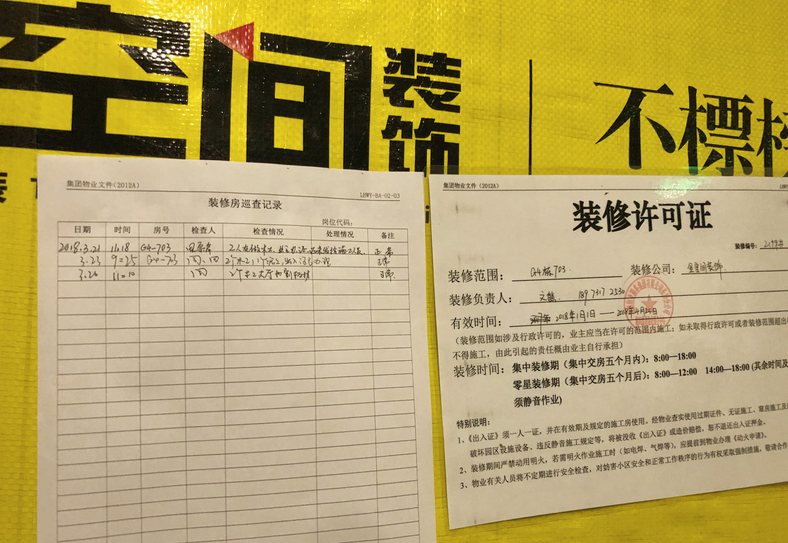 空间装饰
不標榜
集团物业文件(2012A)
LHWY-BA-02-03
装修房巡查记录
岗位代码:
日期 时间 房号 检查人 检查情况 处理情况 备注
2018.3.21 11:18 G4-703 正常
3.23 9=25 G4-703 正常
3.26 11=10 正常
集团物业文件(2012A)
装修许可证
装修编号:
装修范围: G4栋703 装修公司:
装修负责人: 189 7317 2530
有效时间: 2018年1月1日——2018年4月24日
(装修范围如涉及行政许可的,业主应当在许可的范围内施工;如未取得行政许可或者装修范围超出
不得施工,由此引起的责任概由业主自行承担)
装修时间:集中装修期(集中交房五个月内):8:00—18:00
零星装修期(集中交房五个月后):8:00—12:00 14:00—18:00(其余时间及
须静音作业)
特别说明:
1、《出入证》须一人一证,并在有效期及规定的施工房使用,经物业查实使用过期证件、无证施工、窜房施工及
破坏园区设施设备、违反静音施工规定等,将被没收《出入证》或造价赔偿,恕不退还出入证押金。
2、装修期间严禁动用明火,若需明火作业施工时(如电焊、气焊等),应提前到物业办理《动火申请》。
3、物业有关人员将不定期进行安全检查,对妨害小区安全和正常工作秩序的行为有权采取强制措施,敬请合作